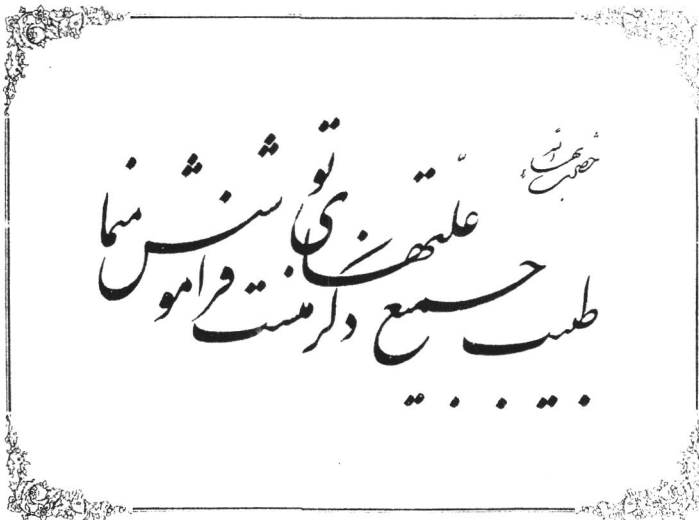 حضرت بهاءالله
طبیب جمیع علتهای تو ذکر منست فراموشش منما